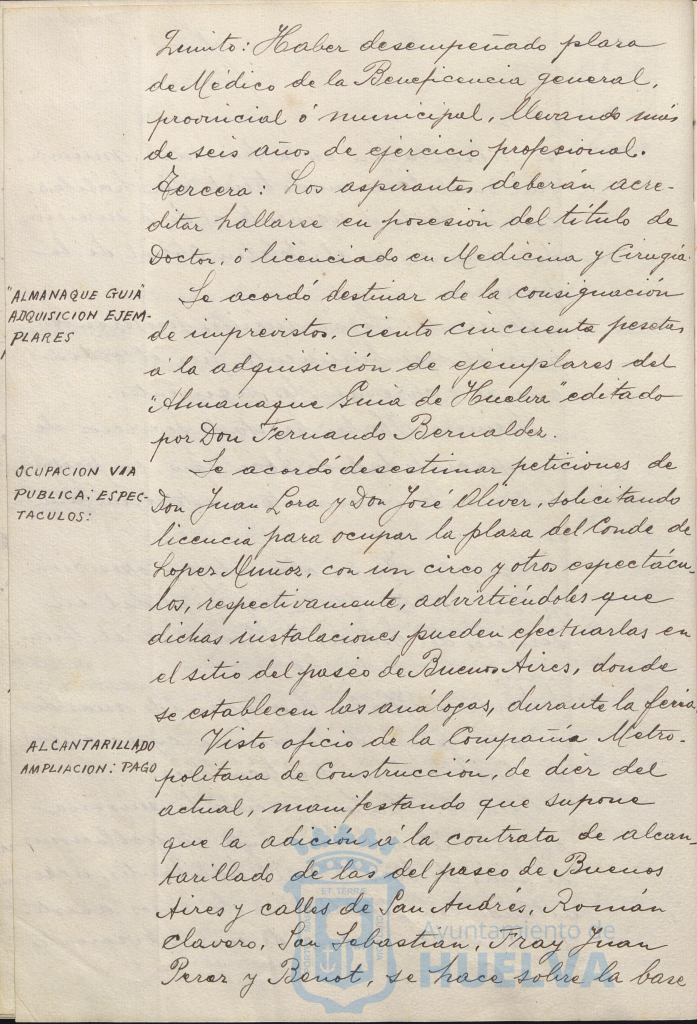 Quinto: Haber desempeñado plaza
de Médico de la Beneficencia general,
provincial ó municipal, llevando más
de seis años de ejercicio profesional.
Tercera: Los aspirantes deberán acre-
ditar hallarse en posesión del título de
Doctor, ó licenciado en Medicina y Cirugía.
"ALMANAQUE GUIA"
ADQUISICION EJEM-
PLARES
Se acordó destinar de la consignación
de imprevistos, ciento cincuenta pesetas
á la adquisición de ejemplares del
"Almanaque Guia de Huelva" editado
por Don Fernando Bernaldez.
OCUPACION VIA
PUBLICA: ESPEC-
TACULOS:
Se acordó desestimar peticiones de
Don Juan Lora y Don José Oliver, solicitando
licencia para ocupar la plaza del Conde de
Lopez Muñoz, con un circo y otros espectácu-
los, respectivamente, advirtiéndoles que
dichas instalaciones pueden efectuarlas en
el sitio del paseo de Buenos Aires, donde
se establecen las análogas, durante la feria.
ALCANTARILLADO
AMPLIACION: PAGO
Visto oficio de la Compañia Metro-
politana de Construcción, de diez del
actual, manifestando que supone
que la adición á la contrata de alcan-
tarillado de las del paseo de Buenos
Aires y calles de San Andrés, Román
Clavero, San Sebastián, Fray Juan
Perez y Benot, se hace sobre la base
Ayuntamiento de
HUELVA